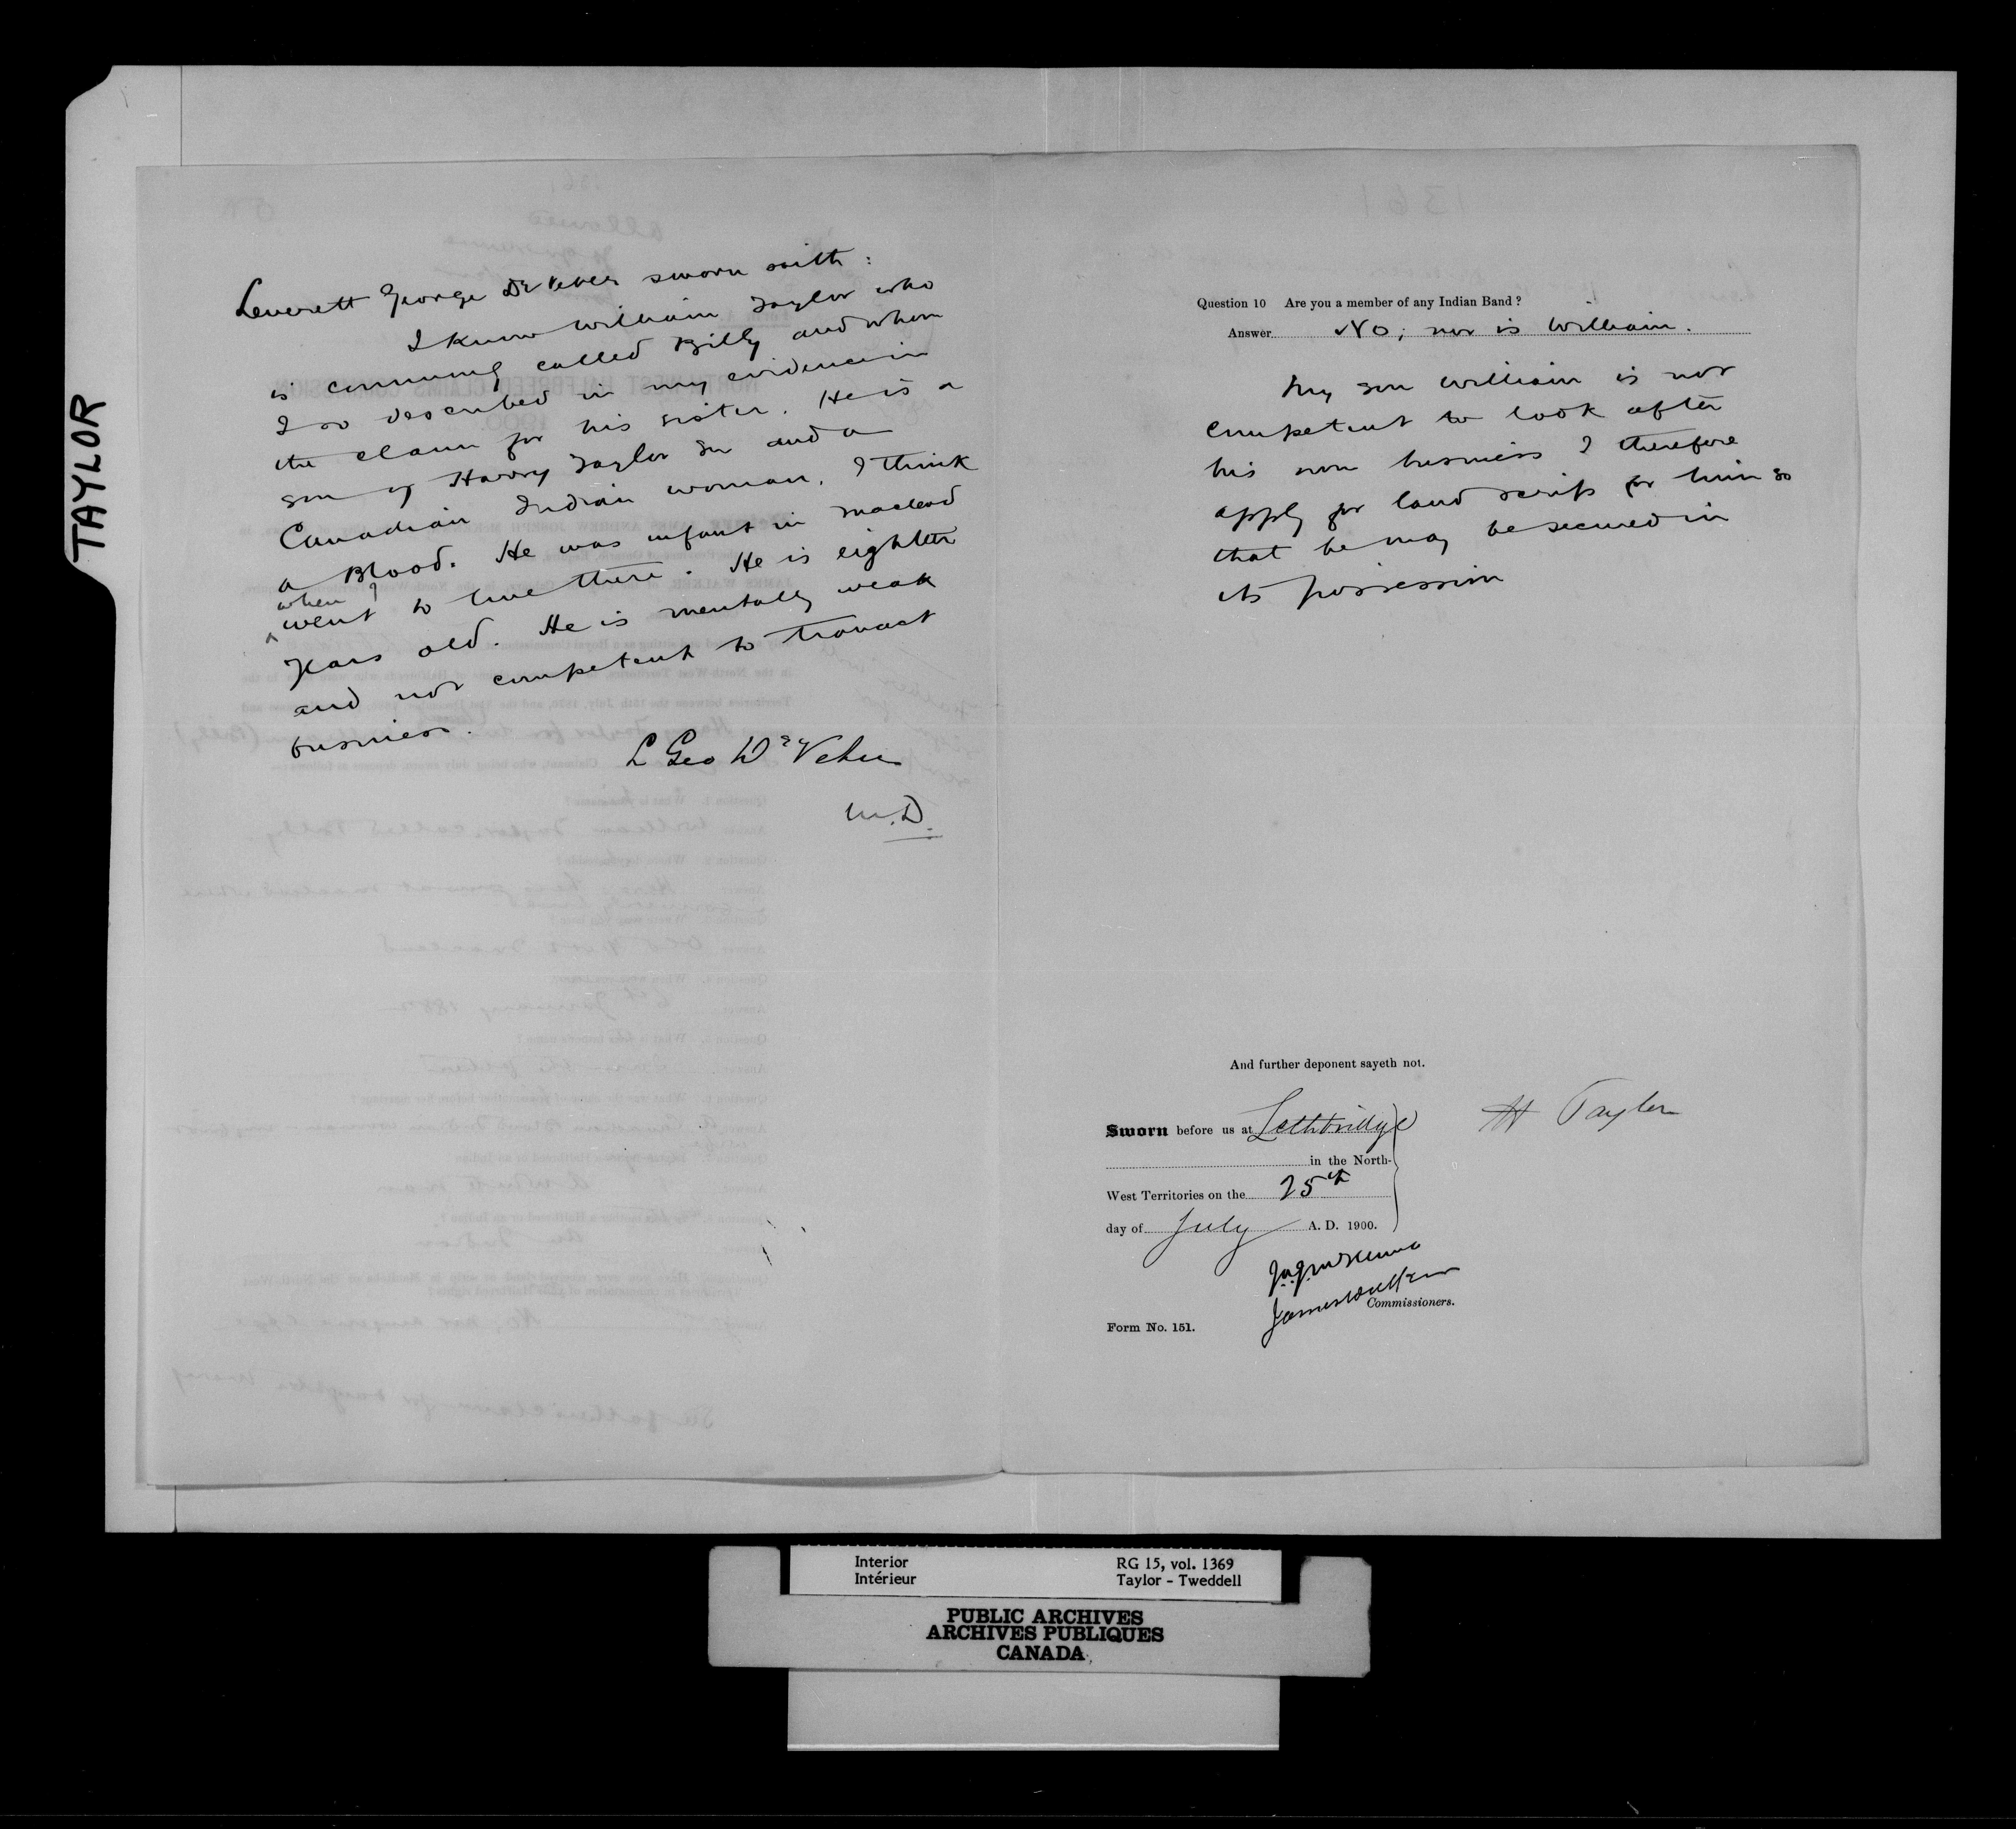 TAYLOR
Leverett George DeVeber sworn saith:
I know William Taylor who
is commonly called Billy and whom
I so described in my evidence in
the claim for his sister. He is a
son of Harry Taylor Sr and a
Canadian Indian woman, I think
a Blood. He was infant in Macleod
when I
went to live there. He is eighteen
years old. He is mentally weak
and not competent to transact
business.
L Geo DeVeber
M.D.
Question 10 Are you a member of any Indian Band?
Answer No; nor is William.
My son William is not
competent to look after
his own business I therefore
apply for land scrip for him so
that he may be secured in
its possession
And further deponent sayeth not.
Sworn before us at Lethbridge
in the North-
West Territories on the 25th
day of July A. D. 1900.
H Taylor
James Walker
Commissioners.
Form No. 151.
Interior
Intérieur
RG 15, vol. 1369
Taylor - Tweddell
PUBLIC ARCHIVES
ARCHIVES PUBLIQUES
CANADA